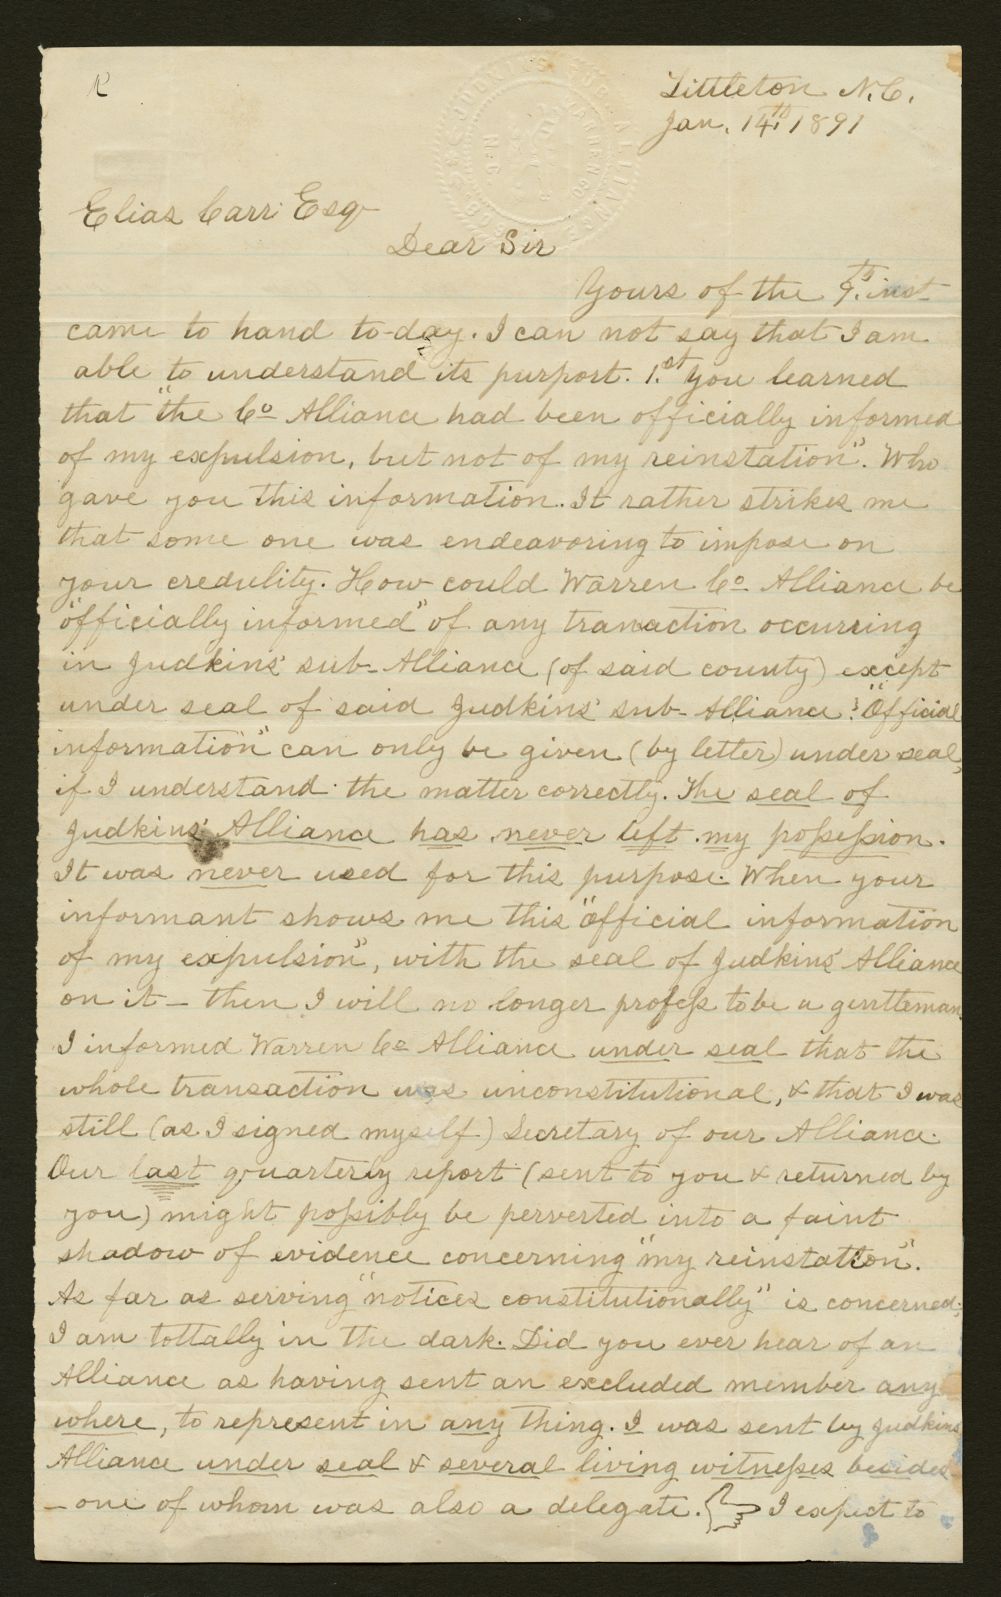 R
Littleton N.C.
Jan. 14th 1891
Elias Carr Esq
Dear Sir
Yours of the 9th inst
came to hand to-day. I can not say that I am
able to understand its purport. 1st you learned
that "the Co Alliance had been officially informed
of my expulsion, but not of my reinstation". Who
gave you this information. It rather strikes me
that some one was endeavoring to impose on
your credulity. How could Warren Co Alliance be
"officially informed" of any transaction occurring
in Judkins' sub-Alliance (of said county) except
under seal of said Judkins' sub-Alliance? "Official
information" can only be given (by letter) under seal,
if I understand the matter correctly. The seal of
Judkins' Alliance has never left my possession.
It was never used for this purpose. When your
informant shows me this "official information
of my expulsion", with the seal of Judkins' Alliance
on it – then I will no longer profess to be a gentleman.
I informed Warren Co Alliance under seal that the
whole transaction was unconstitutional, & that I was
still (as I signed myself) Secretary of our Alliance.
Our last quarterly report (sent to you & returned by
you) might possibly be perverted into a faint
shadow of evidence concerning "my reinstation".
As far as serving "notices constitutionally" is concerned,
I am tottally in the dark. Did you ever hear of an
Alliance as having sent an excluded member any
where, to represent in any thing. I was sent by Judkins
Alliance under seal & several living witnesses besides
– one of whom was also a delegate. I expect to